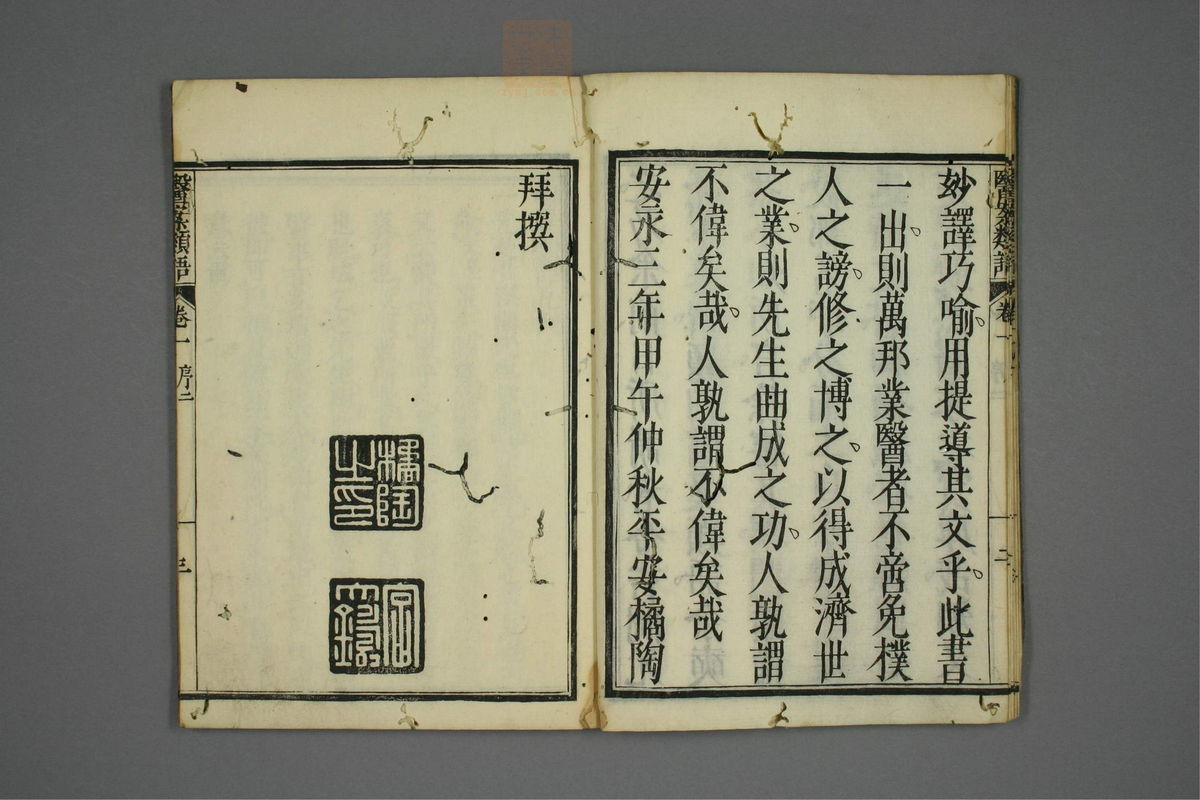 妙譯巧喻。用提導其文乎。此書
一出。則萬邦業醫者不啻免樸
人之謗。修之博之。以得成濟世
之業。則先生曲成之功。人孰謂
不偉矣哉。人孰謂不偉矣哉
安永三年甲午仲秋平安橘陶
拜撰
橘陶
之印
卷一
序二
三
卷一
二